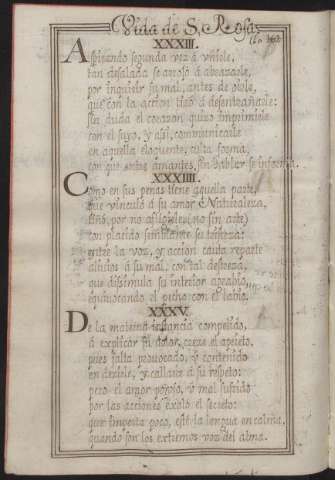 Vida de S. Rosa.
162
XXXIII.
Aspirando segunda vez à vnirse,
tan desalada se arrojò à abrazarle,
por inquirir su mal, antes de oirle,
que con la accion tirò à desentrañarle:
sin duda el corazon quiso imprimirle
con el suyo, y asi, comunicarle
en aquella eloquente, culta forma,
con que entre amantes, sin hablar se informa.
XXXIIII.
Como en sus penas tiene aquella parte,
que vinculò à su amor Naturaleza,
por no afligirle (no sin arte)
con placido semblante su tristeza:
entre la voz, y accion cauta reparte
alivios à su mal, con tal destreza,
que disimula su interior agravio,
equivocando el pecho con el labio.
XXXV.
De la materna instancia compelido,
à explicar su dolor, crece el aprieto,
pues salta provocado, y contenido
en decirle, y callar à su respeto:
pero el amor y mal sufrido
por las acciones exalò el secreto:
que importa poco, esté la lengua en calma,
quando son los extremos voz del alma.